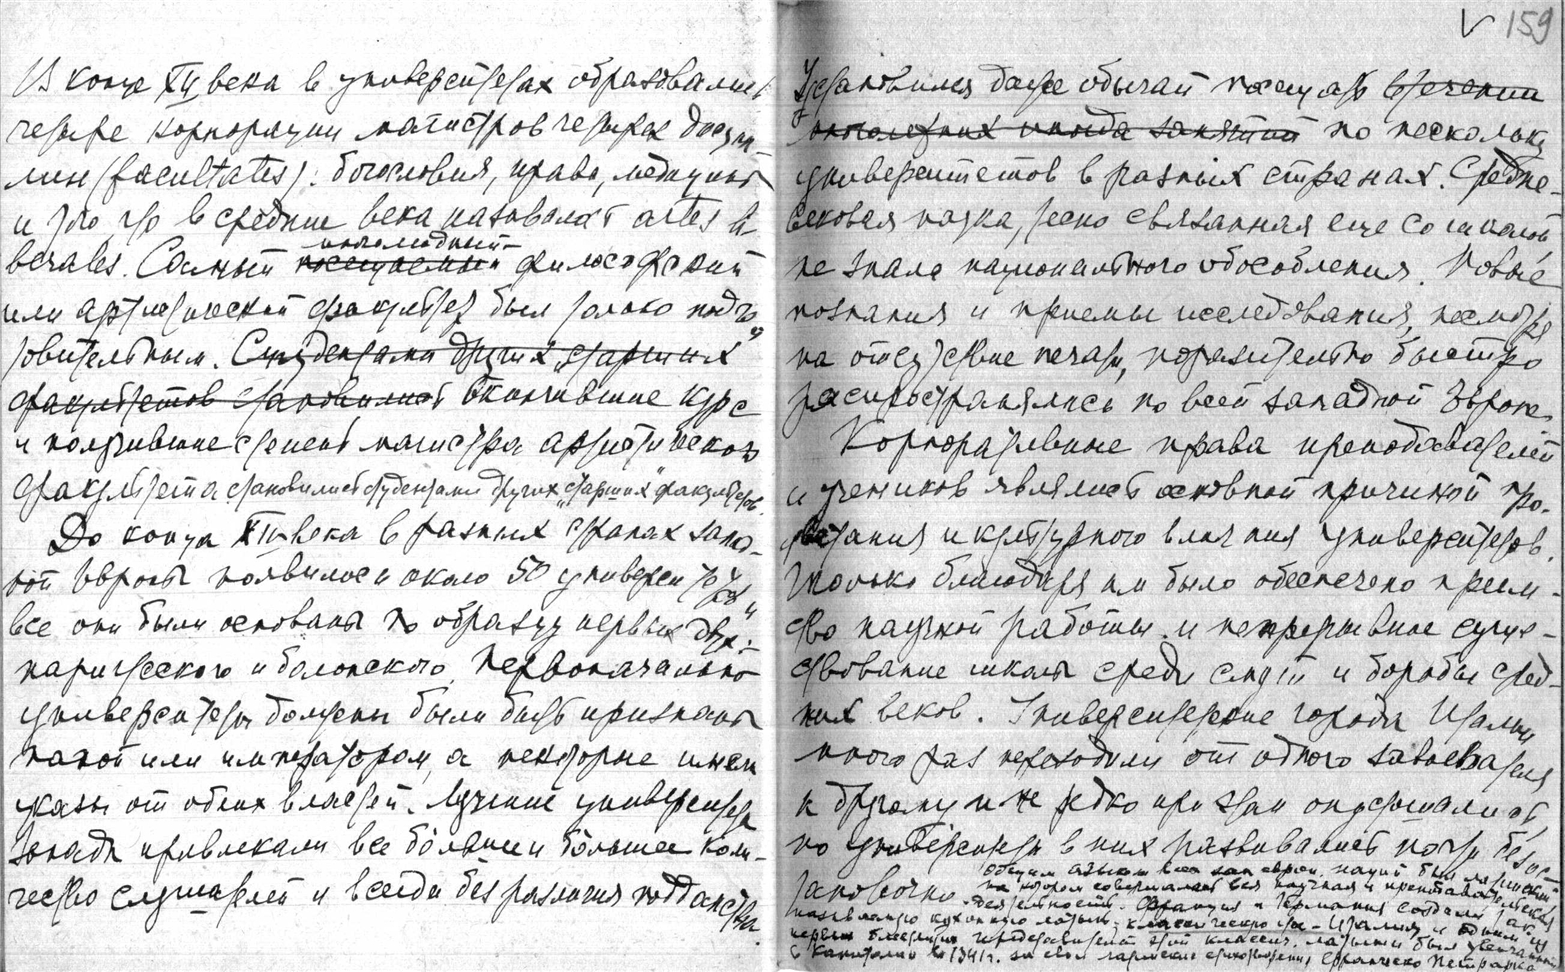 В конце XIII века в университетах образовались
четыре корпорации магистров четырех дисцип-
лин (facultates): богословия, права, медицины
и того что в средние века называют artes li-
berales. Самый посещаемый многолюдный философский
или артистический факультет был только подго-
товительным. Студентами других „старших“
факультетов становились Окончившие курс
и получившие степень магистра артистического
факультета становились студентами других „старших“ факультетов.
До конца XIV века в разных странах запад-
ной Европы появилось около 50 университетов
все они были основаны по образцу первых двух:
парижского и болонского. Первоначально
университеты должны были быть признаны
папой или императором, а некоторые имели
указы от обеих властей. Лучшие университеты
Запада привлекали все больше и большее коли-
чество слушателей и всегда без различия подданства.
159
Установился даже обычай посещать в течении
многолетних иногда занятий по нескольку
университетов в разных странах. Средне-
вековая наука, тесно связанная еще со школой
не знала национального обособления. Новые
познания и приемы исследования, несмотря
на отсутствие печати, поразительно быстро
распространялись по всей западной Европе.
Корпоративные права преподавателей
и учеников являлись основной причиной про-
цветания и культурного влияния университетов.
Только благодаря им было обеспечено преем-
ство научной работы и непрерывное суще-
ствование школы среди смут и борьбы сред-
них веков. Университетские города Италии
много раз переходили от одного завоевателя
к другому и не редко при этом опустошались,
но университеты в них развивались почти безос-
тановочно. Общим языком всех зап. европ. наций был латинский
на котором совершалась вся научная и преподавательская
деятельность. Франция и Германия создали так
называемую кухонную латынь, классическую же – Италия и одним из
первых блестящих представителей этой классич. латыни был увенчанный
в Капитолии в 1341 г. за свои латинские стихотворения, Франческо Петрарка